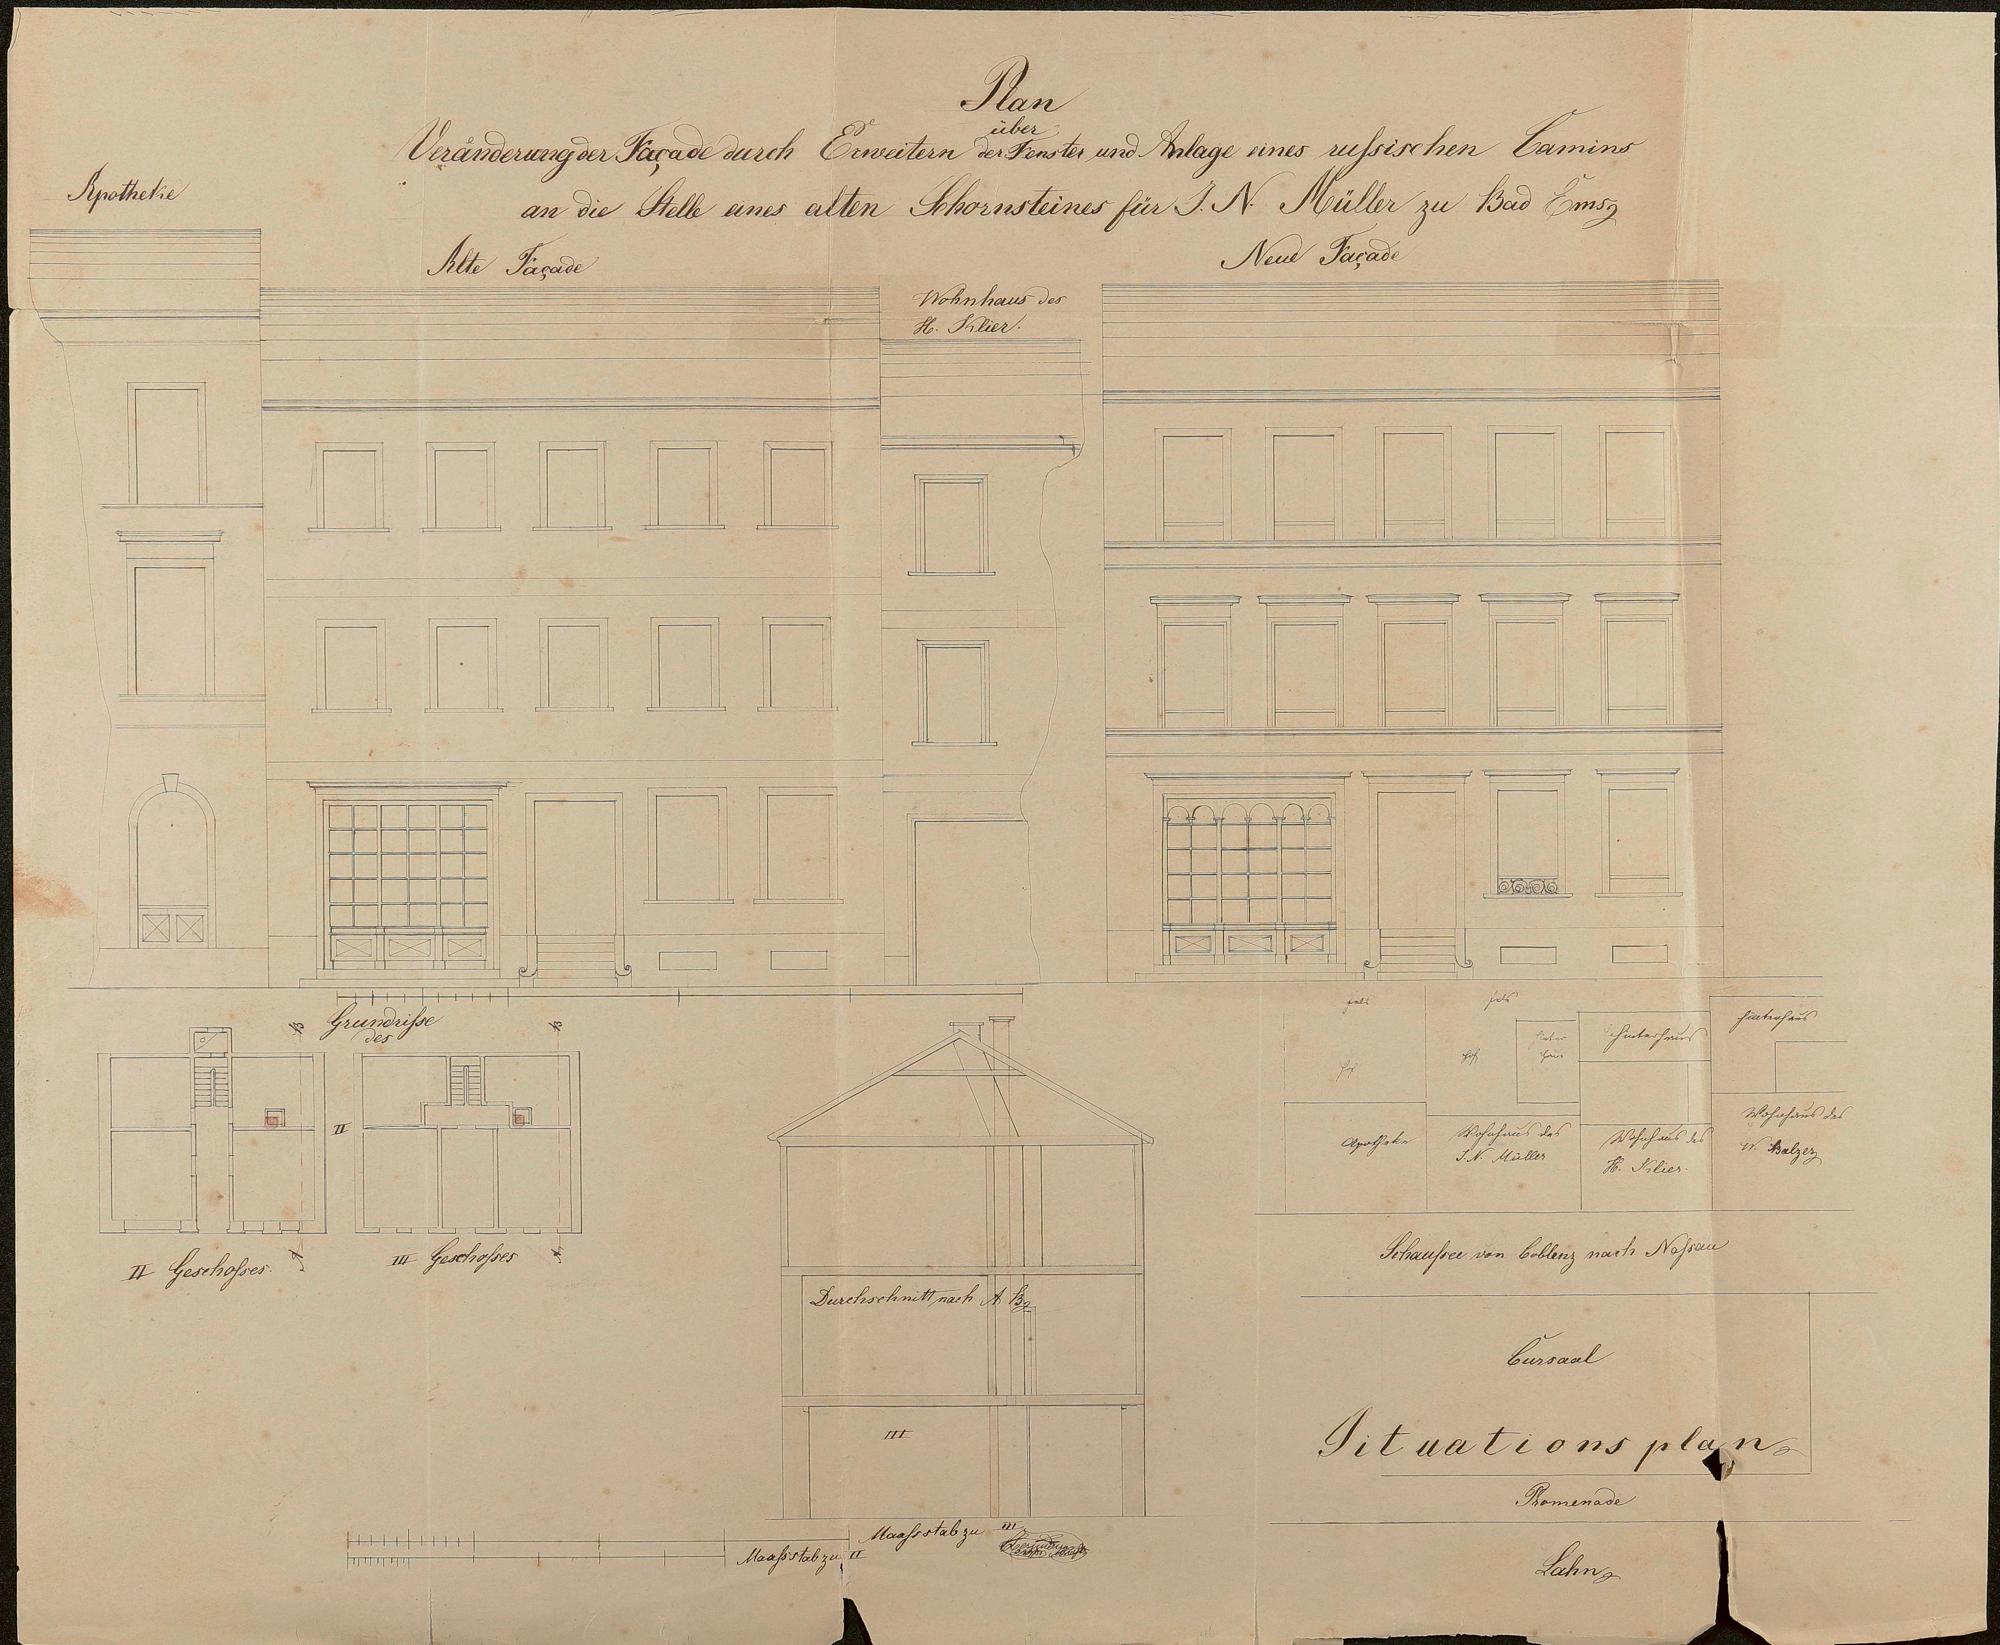 Plan
über
Veränderung der Façade durch Erweitern der Fenster und Anlage eines russischen Camins
an die Stelle eines alten Schornsteines für J. N. Müller zu Bad Ems
Apotheke
Alte Façade
Neue Façade
Wohnhaus des
H. Klier.
Grundrisse
des
II
II Geschosses.
III Geschosses
Durchschnitt nach A. B.
III
Maasstab zu III
Maasstab zu II
fels
fels
Hof
Hof
Hinter
haus
Hinterhaus
Hinterhaus
Apotheke
Wohnhaus des
J. N. Müller
Wohnhaus des
H. Klier.
Wohnhaus des
Balzer
Schaussee von Coblenz nach Nassau
Cursaal
Situationsplan
Promenade
Lahn